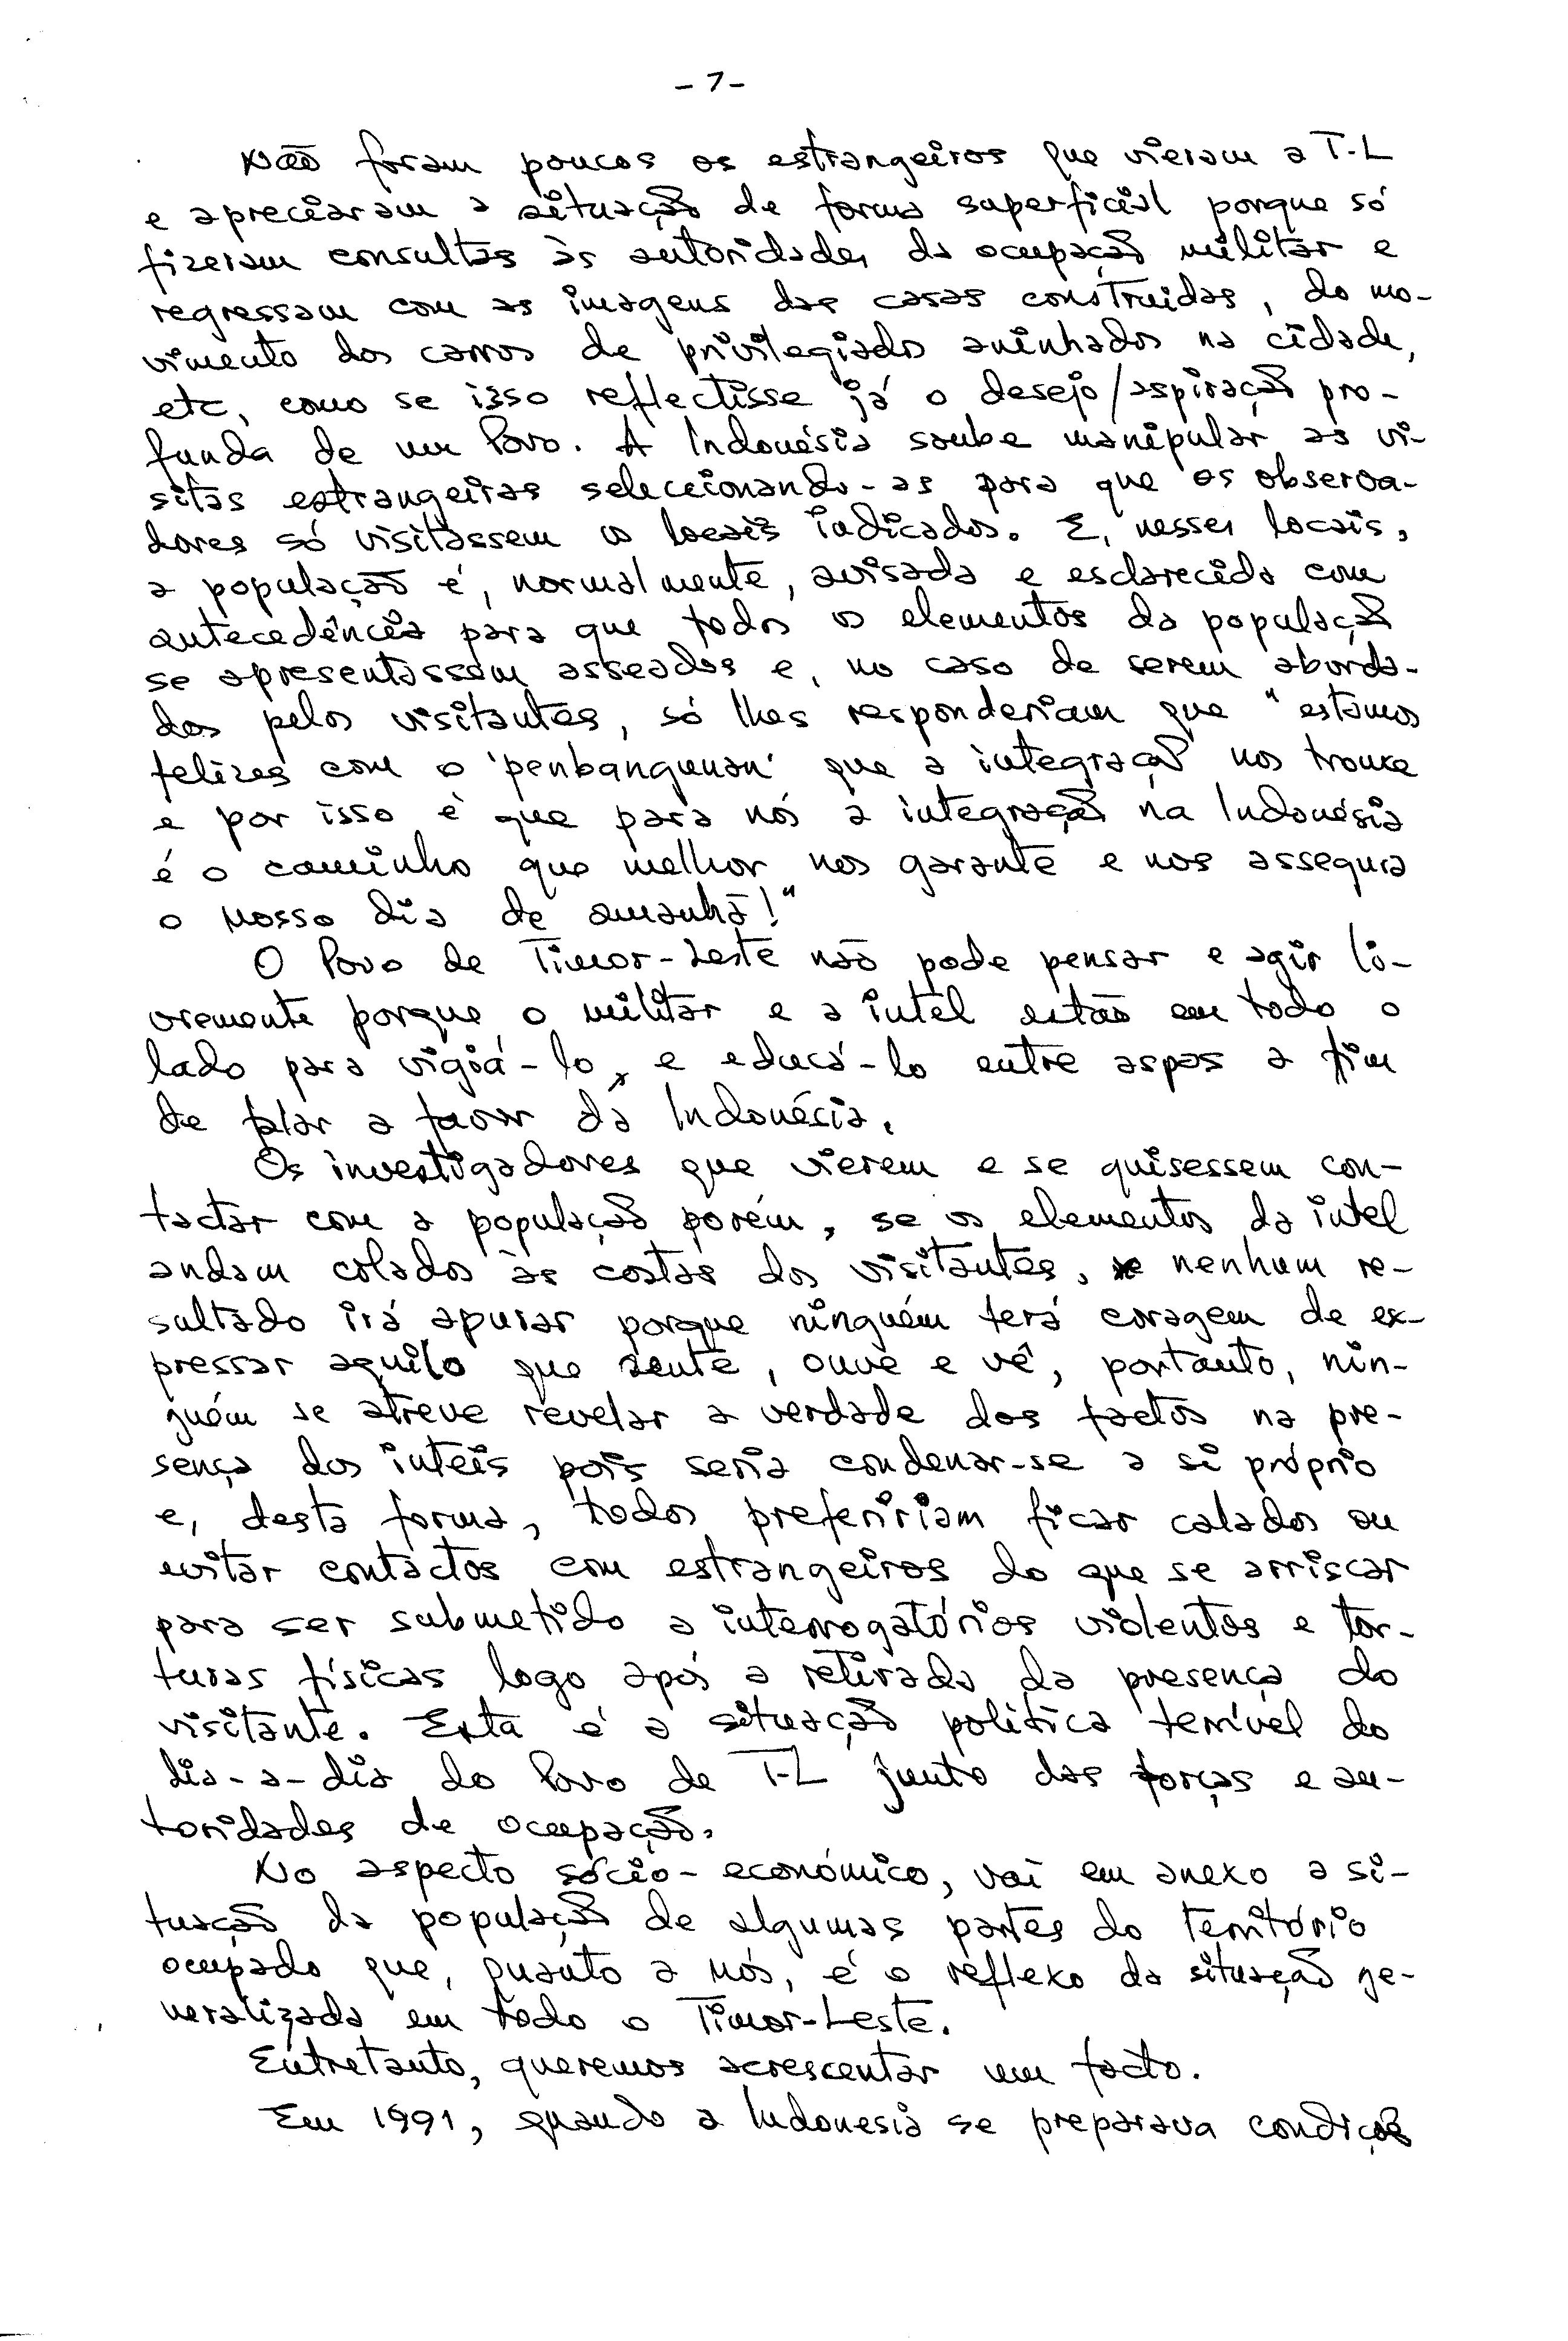 - 7 -
Não foram poucos os estrangeiros que vieram a T-L
e apreciaram a situação de forma superficial porque só
fizeram consultas às autoridades da ocupação militar e
regressam com as imagens das casas construidas, do mo-
vimento dos carros de privilegiados aninhados na cidade,
etc, como se isso reflectisse já o desejo/aspiração pro-
funda de um Povo. A Indonésia soube manipular as vi-
sitas estrangeiras seleccionando-as para que os observa-
dores só visitassem os locais indicados. E, nesses locais,
a população é, normalmente, avisada e esclarecida com
antecedência para que todos os elementos da população
se apresentassem asseados e, no caso de serem aborda-
dos pelos visitantes, só lhes responderiam que "estamos
felizes com o 'penbangunan' que a integração nos trouxe
e por isso é que para nós a integração na Indonésia
é o caminho que melhor nos garante e nos assegura
o nosso dia de amanhã!"
O Povo de Timor-Leste não pode pensar e agir li-
vremente porque o militar e a intel estão em todo o
lado para vigiá-lo, e educá-lo entre aspas a fim
de falar a favor da Indonésia.
Os investigadores que vierem e se quisessem con-
tactar com a população porém, se os elementos da intel
andam colados às costas dos visitantes, nenhum re-
sultado irá apurar porque ninguém terá coragem de ex-
pressar aquilo que sente, ouve e vê, portanto, nin-
guém se atreve revelar a verdade dos factos na pre-
sença dos inteis pois seria condenar-se a si próprio
e, desta forma, todos prefeririam ficar calados ou
evitar contactos com estrangeiros do que se arriscar
para ser submetido a interrogatórios violentos e tor-
turas físicas logo após a retirada da presença do
visitante. Esta é a situação política terrível do
dia-a-dia do Povo de T-L junto das forças e au-
toridades de ocupação.
No aspecto sócio-económico, vai em anexo a si-
tuação da população de algumas partes do território
ocupado que, quanto a nós, é o reflexo da situação ge-
neralizada em todo o Timor-Leste.
Entretanto, queremos acrescentar um facto.
Em 1991, quando a Indonesia se preparava condições